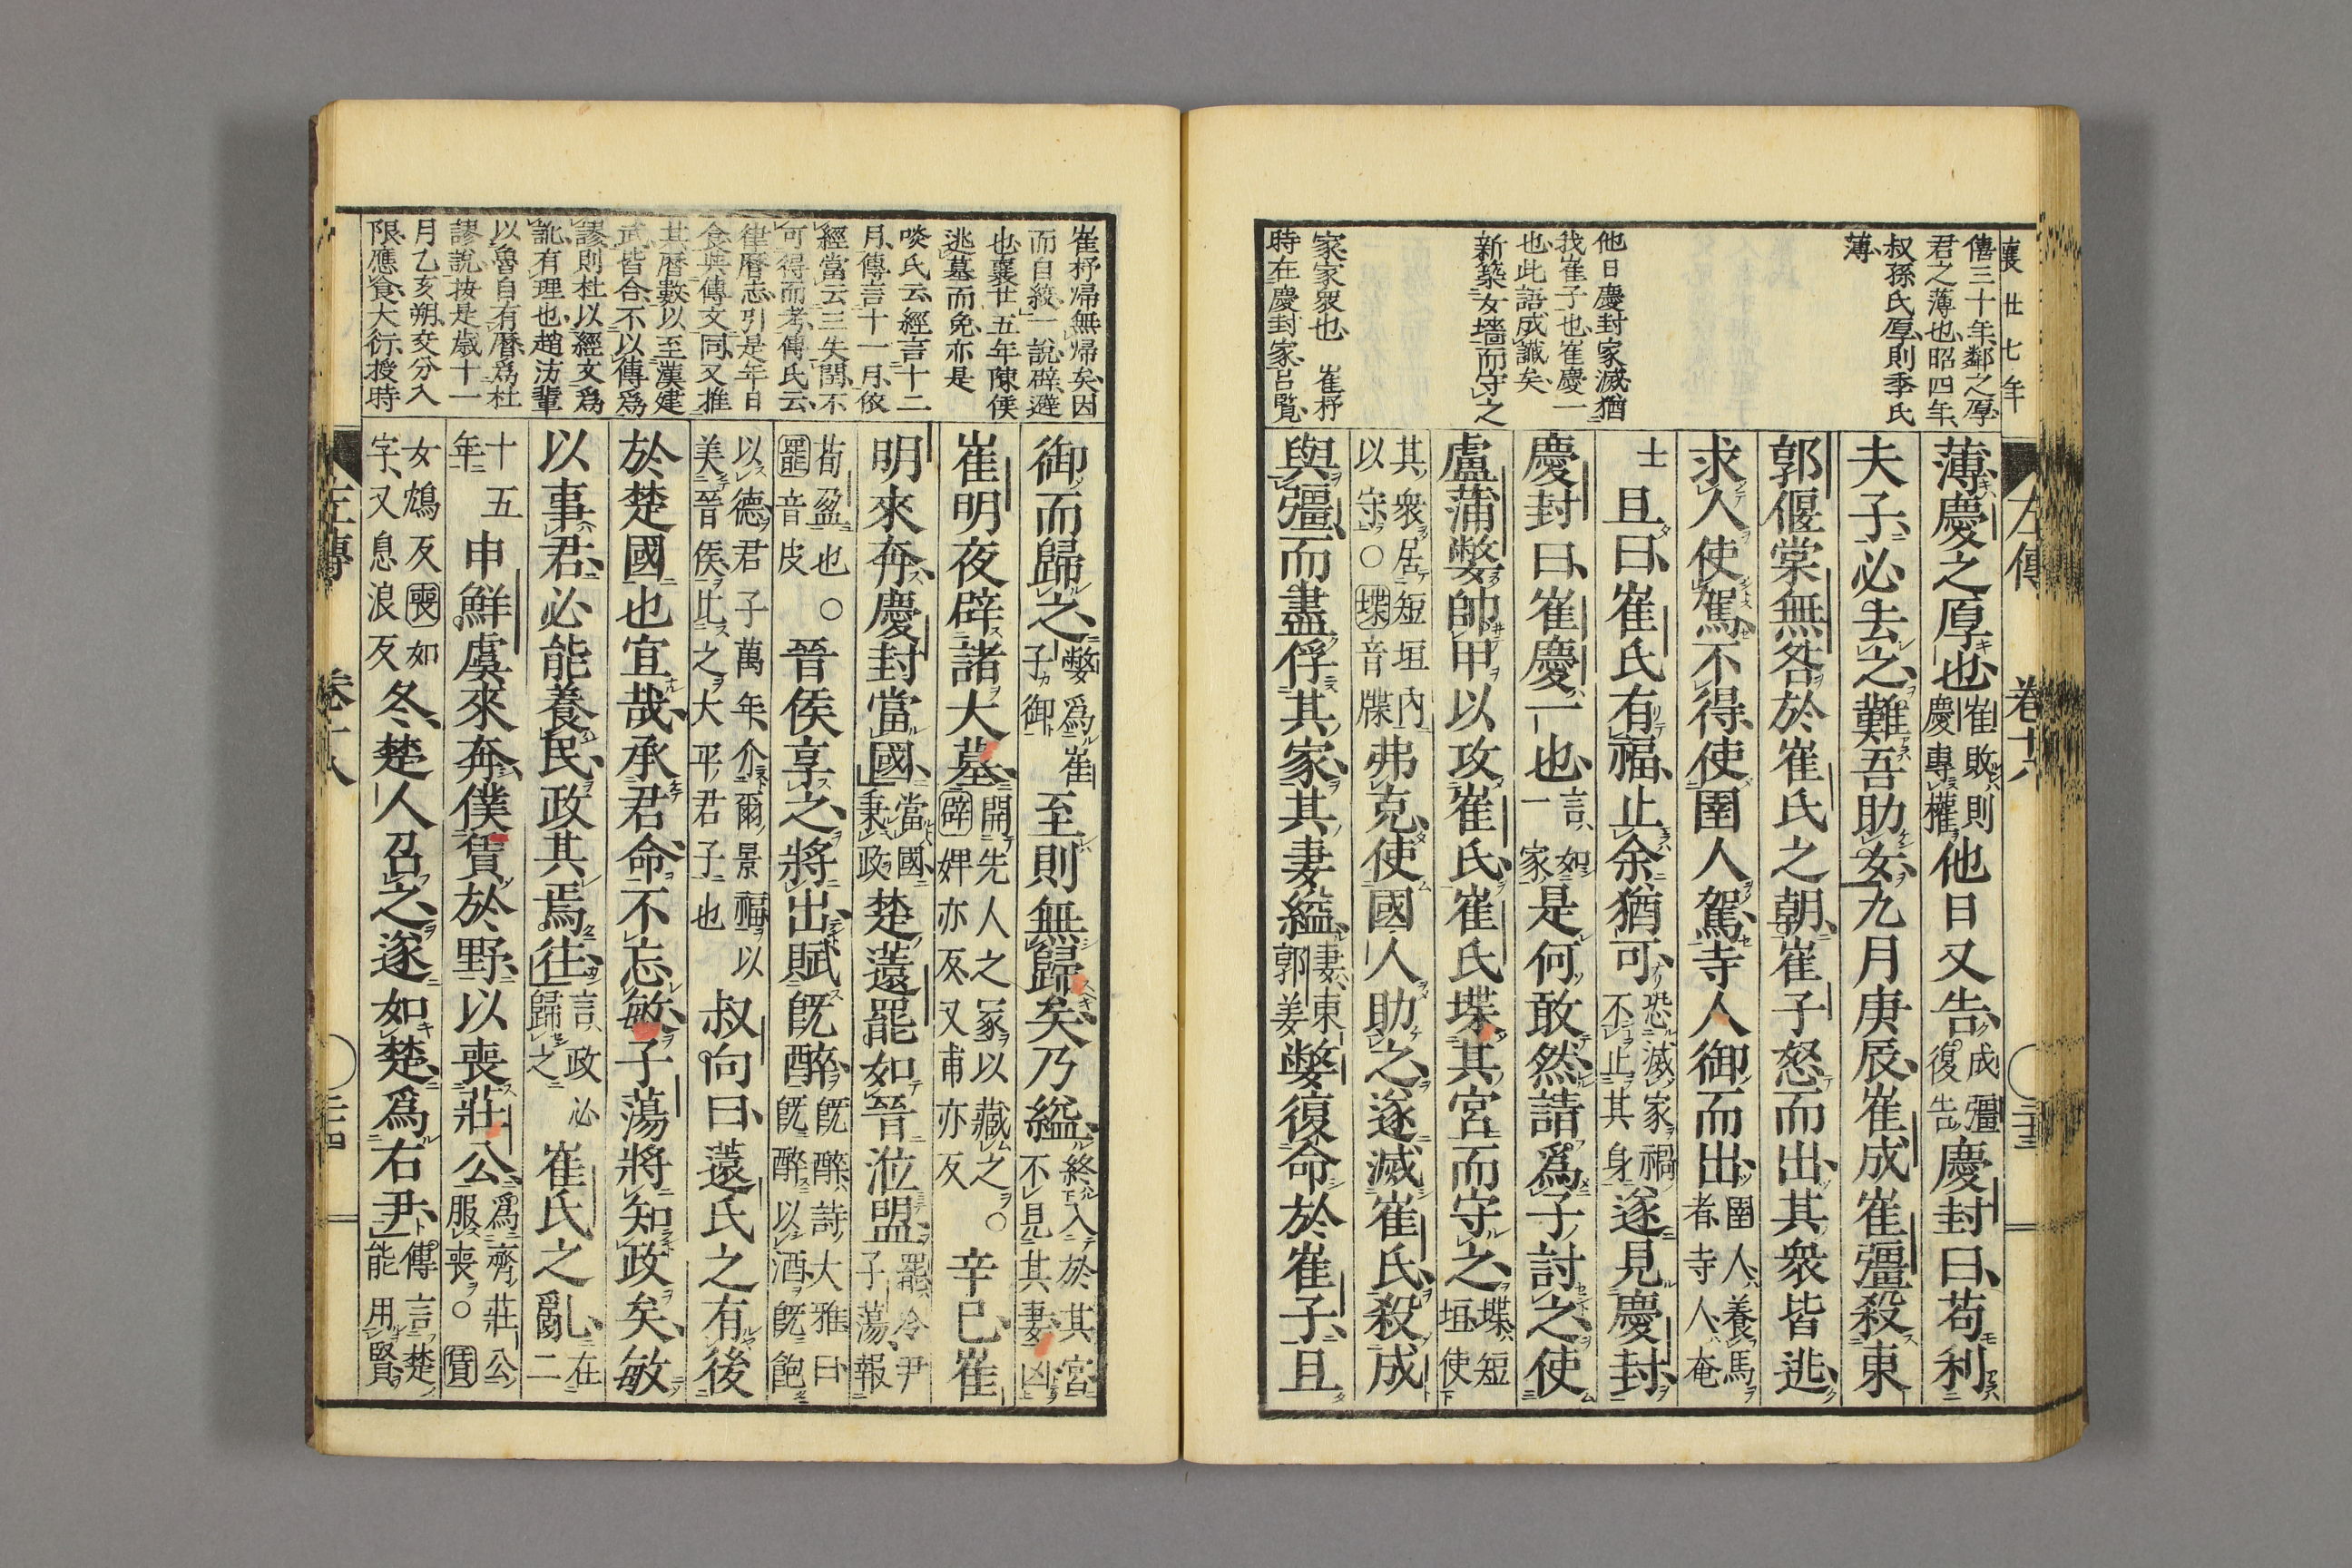 襄廿七年
僖三十年鄰之厚
君之薄也昭四年
叔孫氏厚則季氏
薄
他日慶封家滅猶
我崔子也崔慶一
也此語成讖矣
新築女墻而守之
家家衆也 崔杼
時在慶封家呂覽
左傳 卷十八 二十三
薄慶之厚也崔敗則慶專權他日又告成彊復告慶封曰苟利
夫子必去之難吾助女九月庚辰崔成崔彊殺東
郭偃棠無咎於崔氏之朝崔子怒而出其衆皆逃
求人使駕不得使圉人駕寺人御而出圉人養馬者寺人奄
士且曰崔氏有福止余猶可恐滅家禍不止其身遂見慶封
慶封曰崔慶一也言如一家是何敢然請爲子討之使
盧蒲嫳帥甲以攻崔氏崔氏堞其宮而守之堞短垣使
其衆居短垣內以守○堞音牒弗克使國人助之遂滅崔氏殺成
與彊而盡俘其家其妻縊妻東郭姜嫳復命於崔子且
崔杼歸無歸矣因
而自絞一說辟避
也襄廿五年陳侯
逃墓而免亦是
啖氏云經言十二
月傳言十一月依
經當云三失閏不
可得而考傳氏云
律曆志引是年日
食與傳文同又推
其曆數以至漢建
武皆合不以傳爲
謬則杜以經文爲
訛有理也趙汸輩
以魯自有曆爲杜
謬說按是歲十一
月乙亥朔交分入
限應食大衍授時
御而歸之嫳爲崔子御至則無歸矣乃縊終入於其宮不見其妻凶
崔明夜辟諸大墓開先人之冢以藏之○辟婢亦反又甫亦反辛巳崔
明來奔慶封當國當國秉政楚薳罷如晉涖盟罷令尹子蕩報
荀盈也○罷音皮晉侯享之將出賦旣醉旣醉詩大雅曰旣醉以酒旣飽
以德君子萬年介爾景福以美晉侯比之大平君子也叔向曰薳氏之有後
於楚國也宜哉承君命不忘敏子蕩將知政矣敏
以事君必能養民政其焉往言政必歸之崔氏之亂在二
十五年申鮮虞來奔僕賃於野以喪莊公爲齊莊公服喪○賃
女鴆反喪如字又息浪反冬楚人召之遂如楚爲右尹傳言楚能用賢